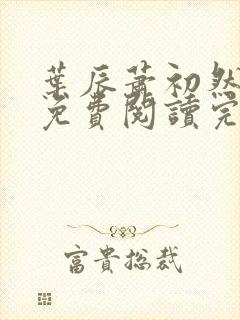 葉辰蕭初然
免費閱讀完
富貴總裁